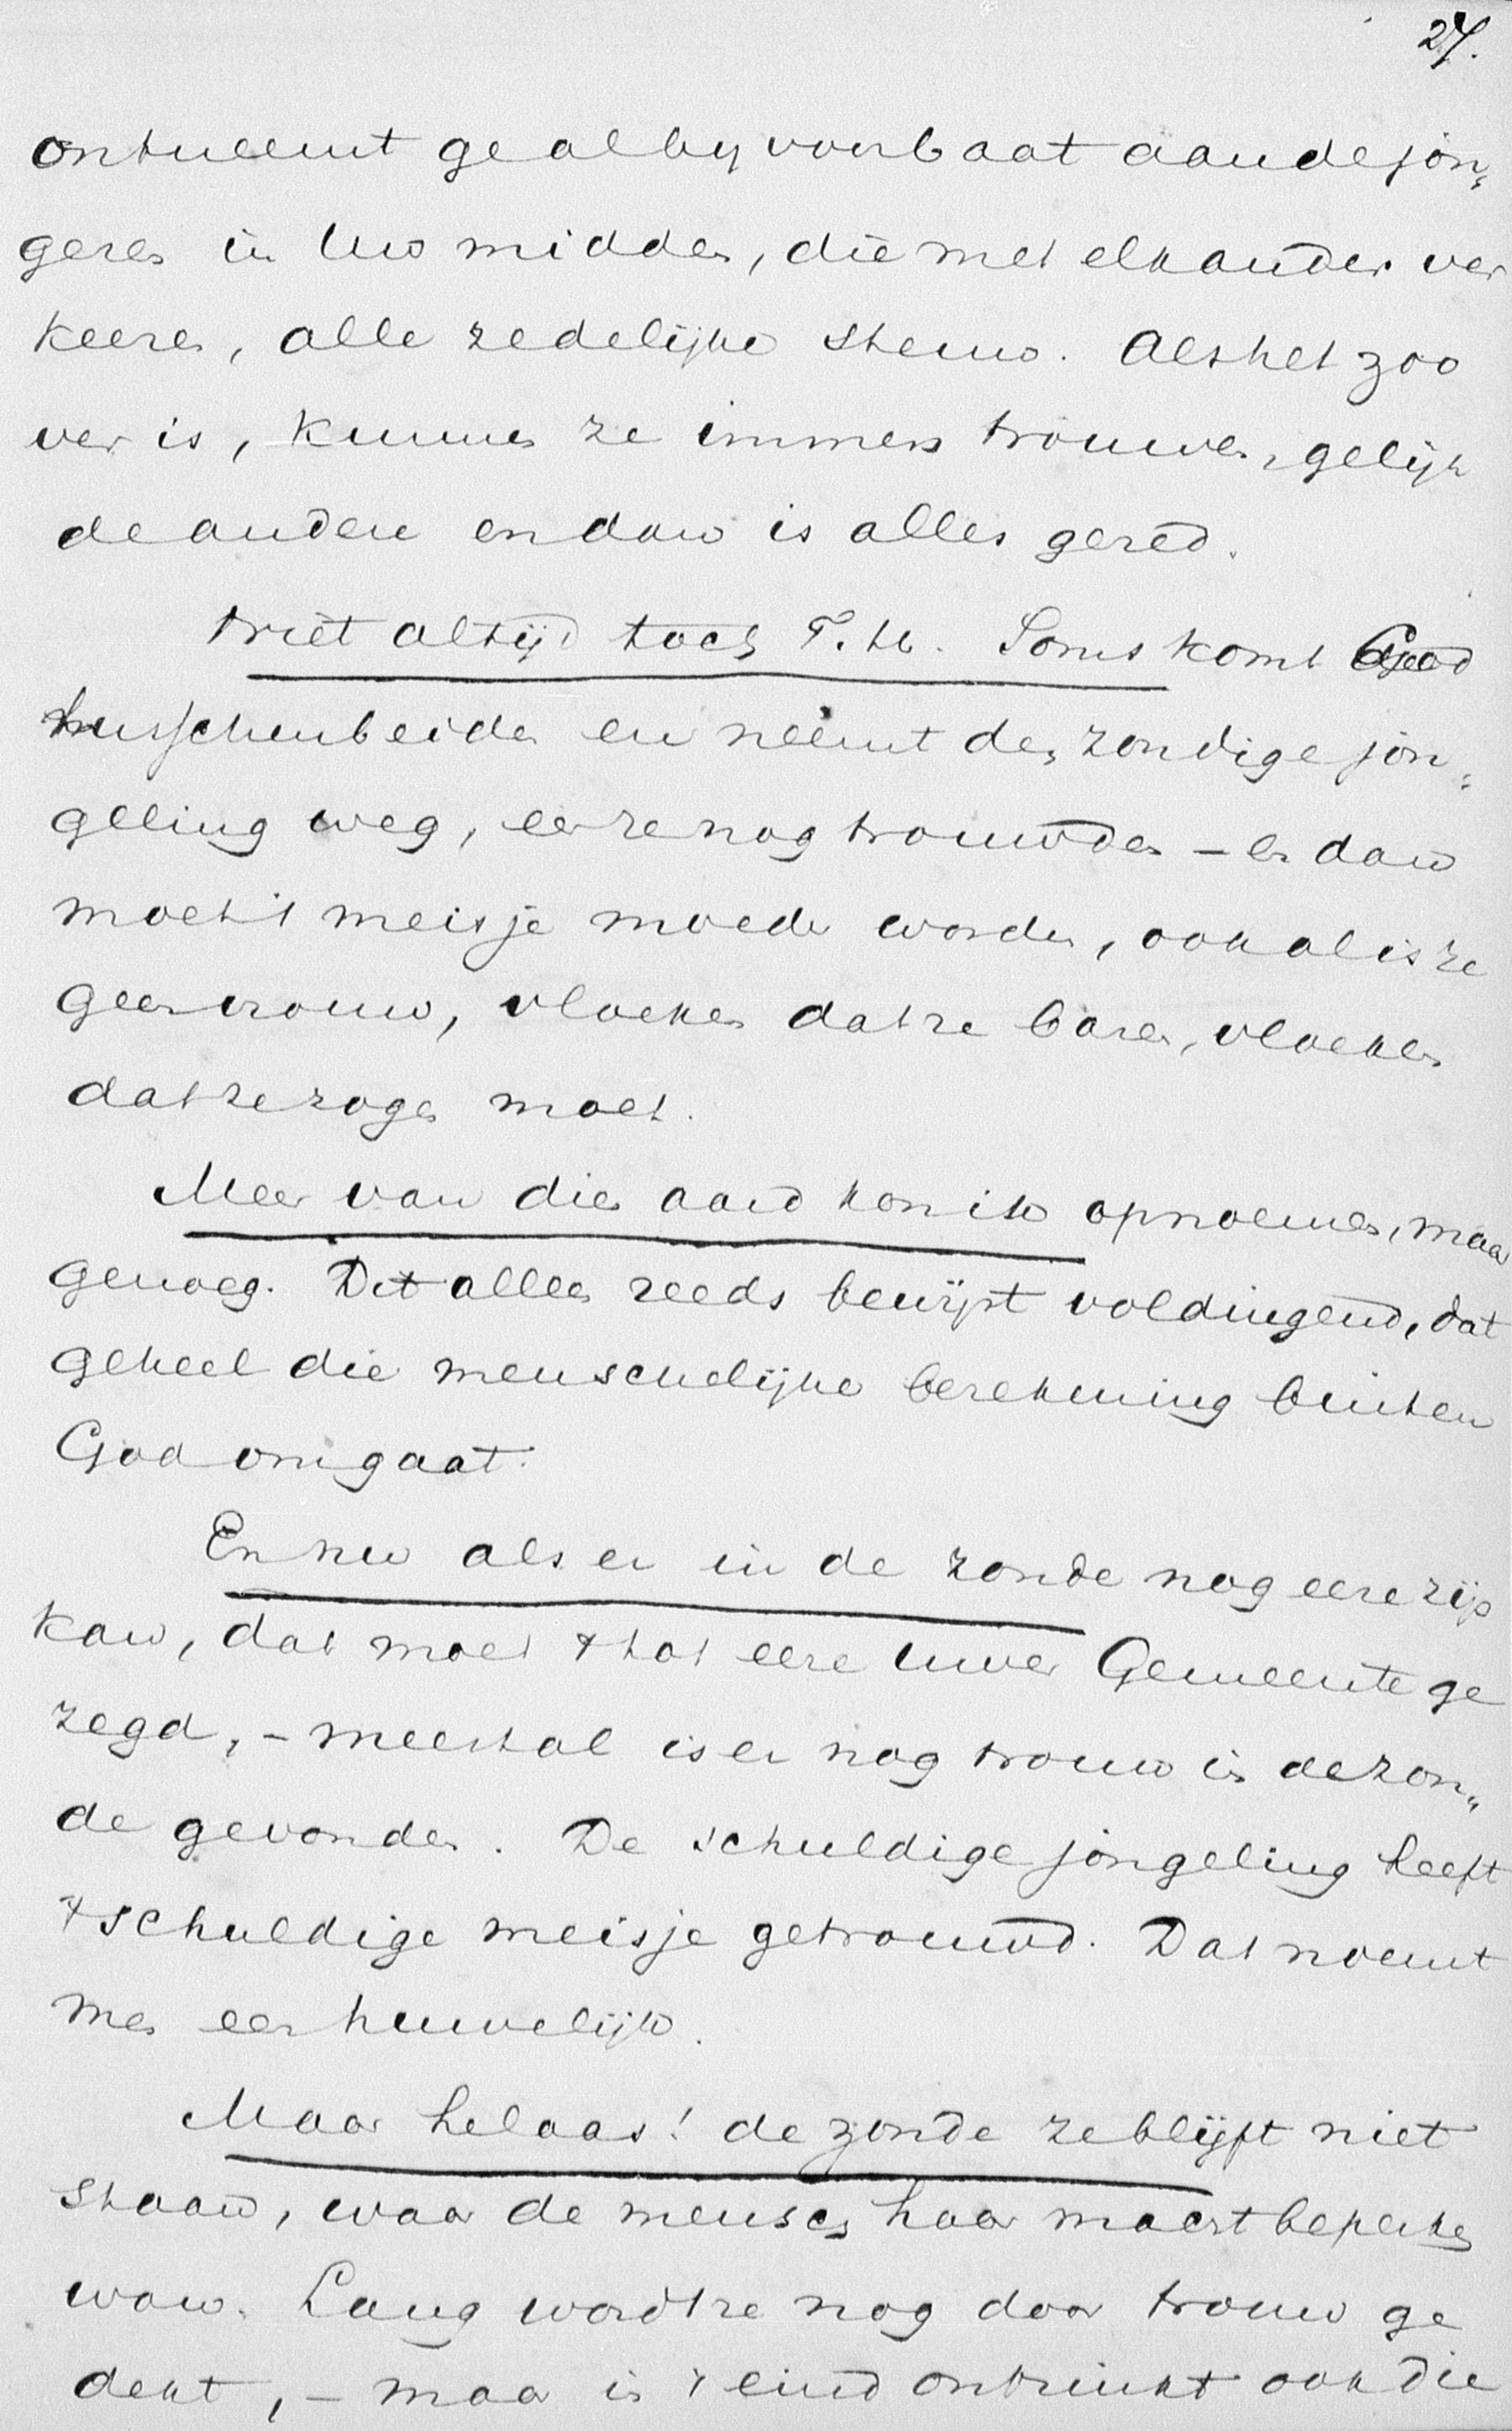 27.
ontneemt ge al by voorbaat aan de jon=
geren in Uw midden, die met elkander ver
keeren, alle zedelijke steun. Als het zoo
ver is, kunnen ze immers trouwen, gelijk
de andere en dan is alles gered.
Niet altijd toch T. H. Soms komt God
tusschenbeiden en neemt den zondige jon=
geling weg, eer ze nog trouwden – en dan
moet 't meisje moeder worden, ook al is ze
geen vrouw, vloeken dat ze baren, vloeken
dat ze zogen moet.
Meer van dien aard kon ik opnoemen, maar
genoeg. Dit alles reeds bewijst voldingend, dat
geheel die menschelijke berekening buiten
God omgaat.
En nu als er in de zonde nog eere zijn
kan, dat moet tot eere Uwer Gemeente ge
zegd, – meestal is er nog trouw in de zon„
de gevonden. De schuldige jongeling heeft
't schuldige meisje getrouwd. Dat noemt
men een huwelijk.
Maar helaas! de zonde ze blijft niet
staan, waar de mensch haar macht beperken
wou. Lang wordt ze nog door trouw ge
dekt, – maar in 't eind ontzinkt ook die